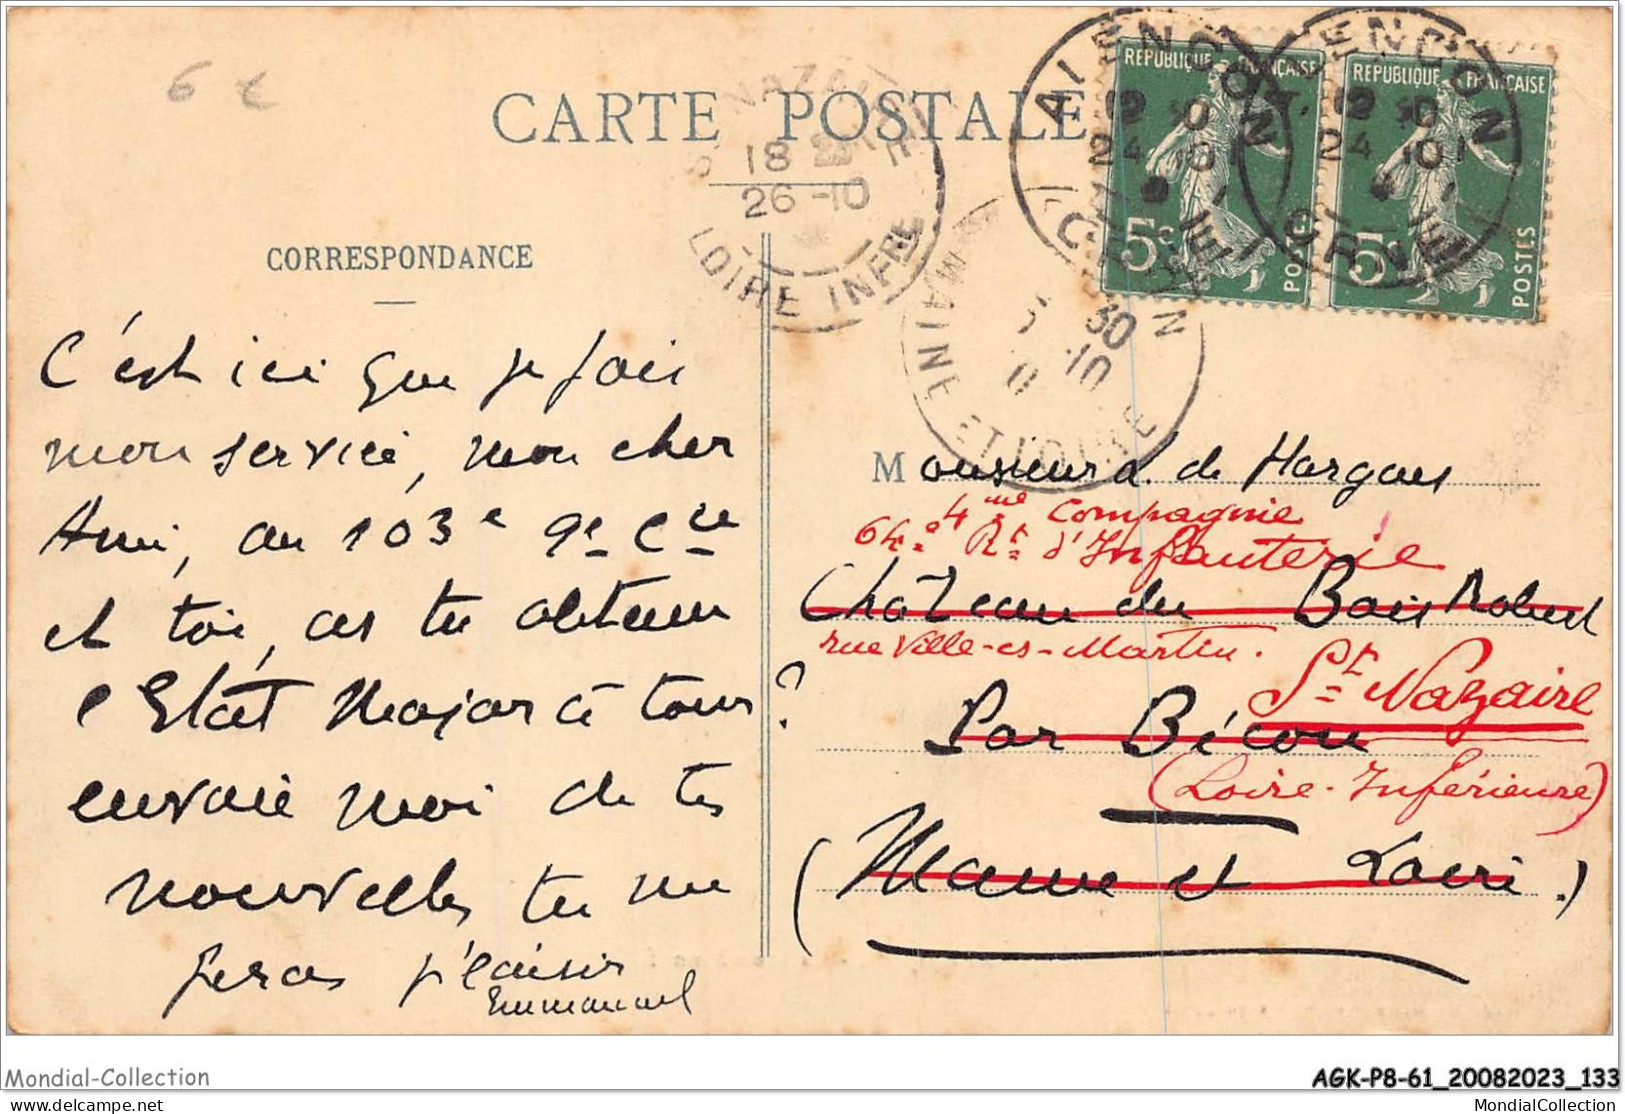 6 €
CARTE POSTALE
ALENCON
ORNE
12 30
24 10
REPUBLIQUE FRANÇAISE
5c
POSTES
ALENCON
ORNE
12 30
24 10
REPUBLIQUE FRANÇAISE
5c
POSTES
ST NAZAIRE
18
26 -10
LOIRE INFRE
MAINE ET LOIRE
30
10
CORRESPONDANCE
C'est ici que je fais
mon service, mon cher
Ami, au 103e 9e Cie
et toi, as tu obtenu
l'Etat Major à tours ?
envoie moi de tes
nouvelles tu me
feras plaisir
Emmanuel
Monsieur de Hargues
4me Compagnie
64e Rt d'Infanterie
Château du Bois Robert
rue Ville-es-Martin.
St Nazaire
Par Bécon
(Loire-Inférieure)
(Maine et Loire.)
Mondial-Collection
AGK-P8-61_20082023_133
delcampe.net
MondialCollection